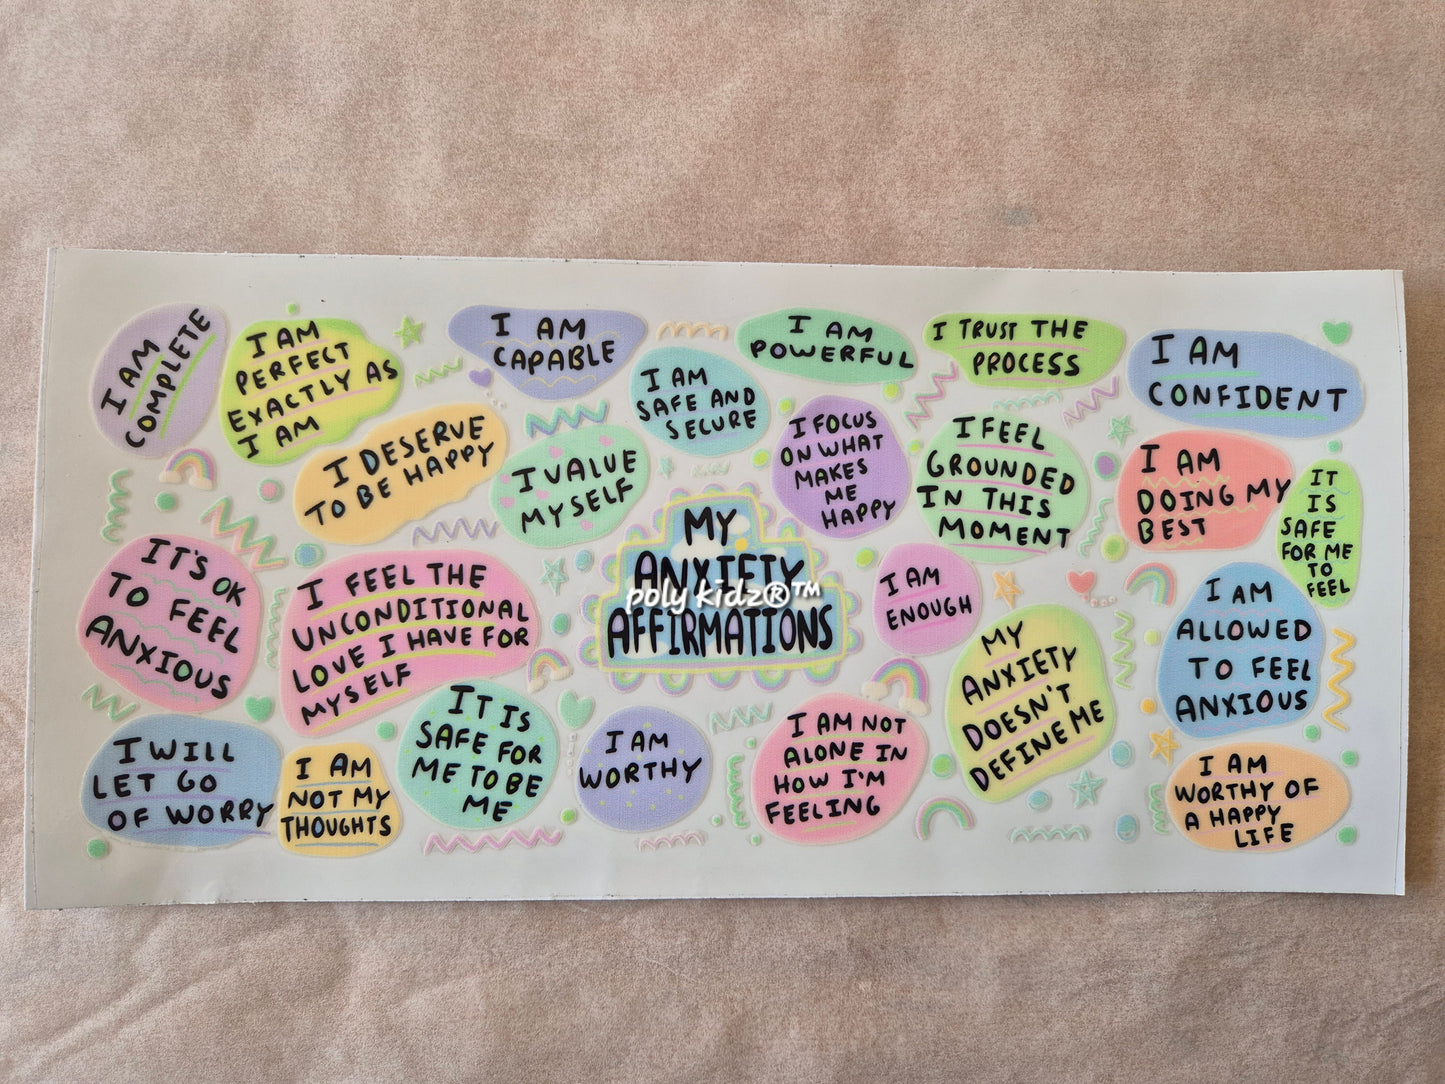 I AM
COMPLETE
I AM
PERFECT
EXACTLY AS
I AM
I AM
CAPABLE
I AM
SAFE AND
SECURE
I AM
POWERFUL
I TRUST THE
PROCESS
I AM
CONFIDENT
I DESERVE
TO BE HAPPY
I VALUE
MYSELF
I FOCUS
ON WHAT
MAKES
ME
HAPPY
I FEEL
GROUNDED
IN THIS
MOMENT
I AM
DOING MY
BEST
IT
IS
SAFE
FOR ME
TO
FEEL
IT'S OK
TO FEEL
ANXIOUS
I FEEL THE
UNCONDITIONAL
LOVE I HAVE FOR
MYSELF
MY
ANXIETY
poly kidz®™
AFFIRMATIONS
I AM
ENOUGH
MY
ANXIETY
DOESN'T
DEFINE ME
I AM
ALLOWED
TO FEEL
ANXIOUS
I WILL
LET GO
OF WORRY
I AM
NOT MY
THOUGHTS
IT IS
SAFE FOR
ME TO BE
ME
I AM
WORTHY
I AM NOT
ALONE IN
HOW I'M
FEELING
I AM
WORTHY OF
A HAPPY
LIFE